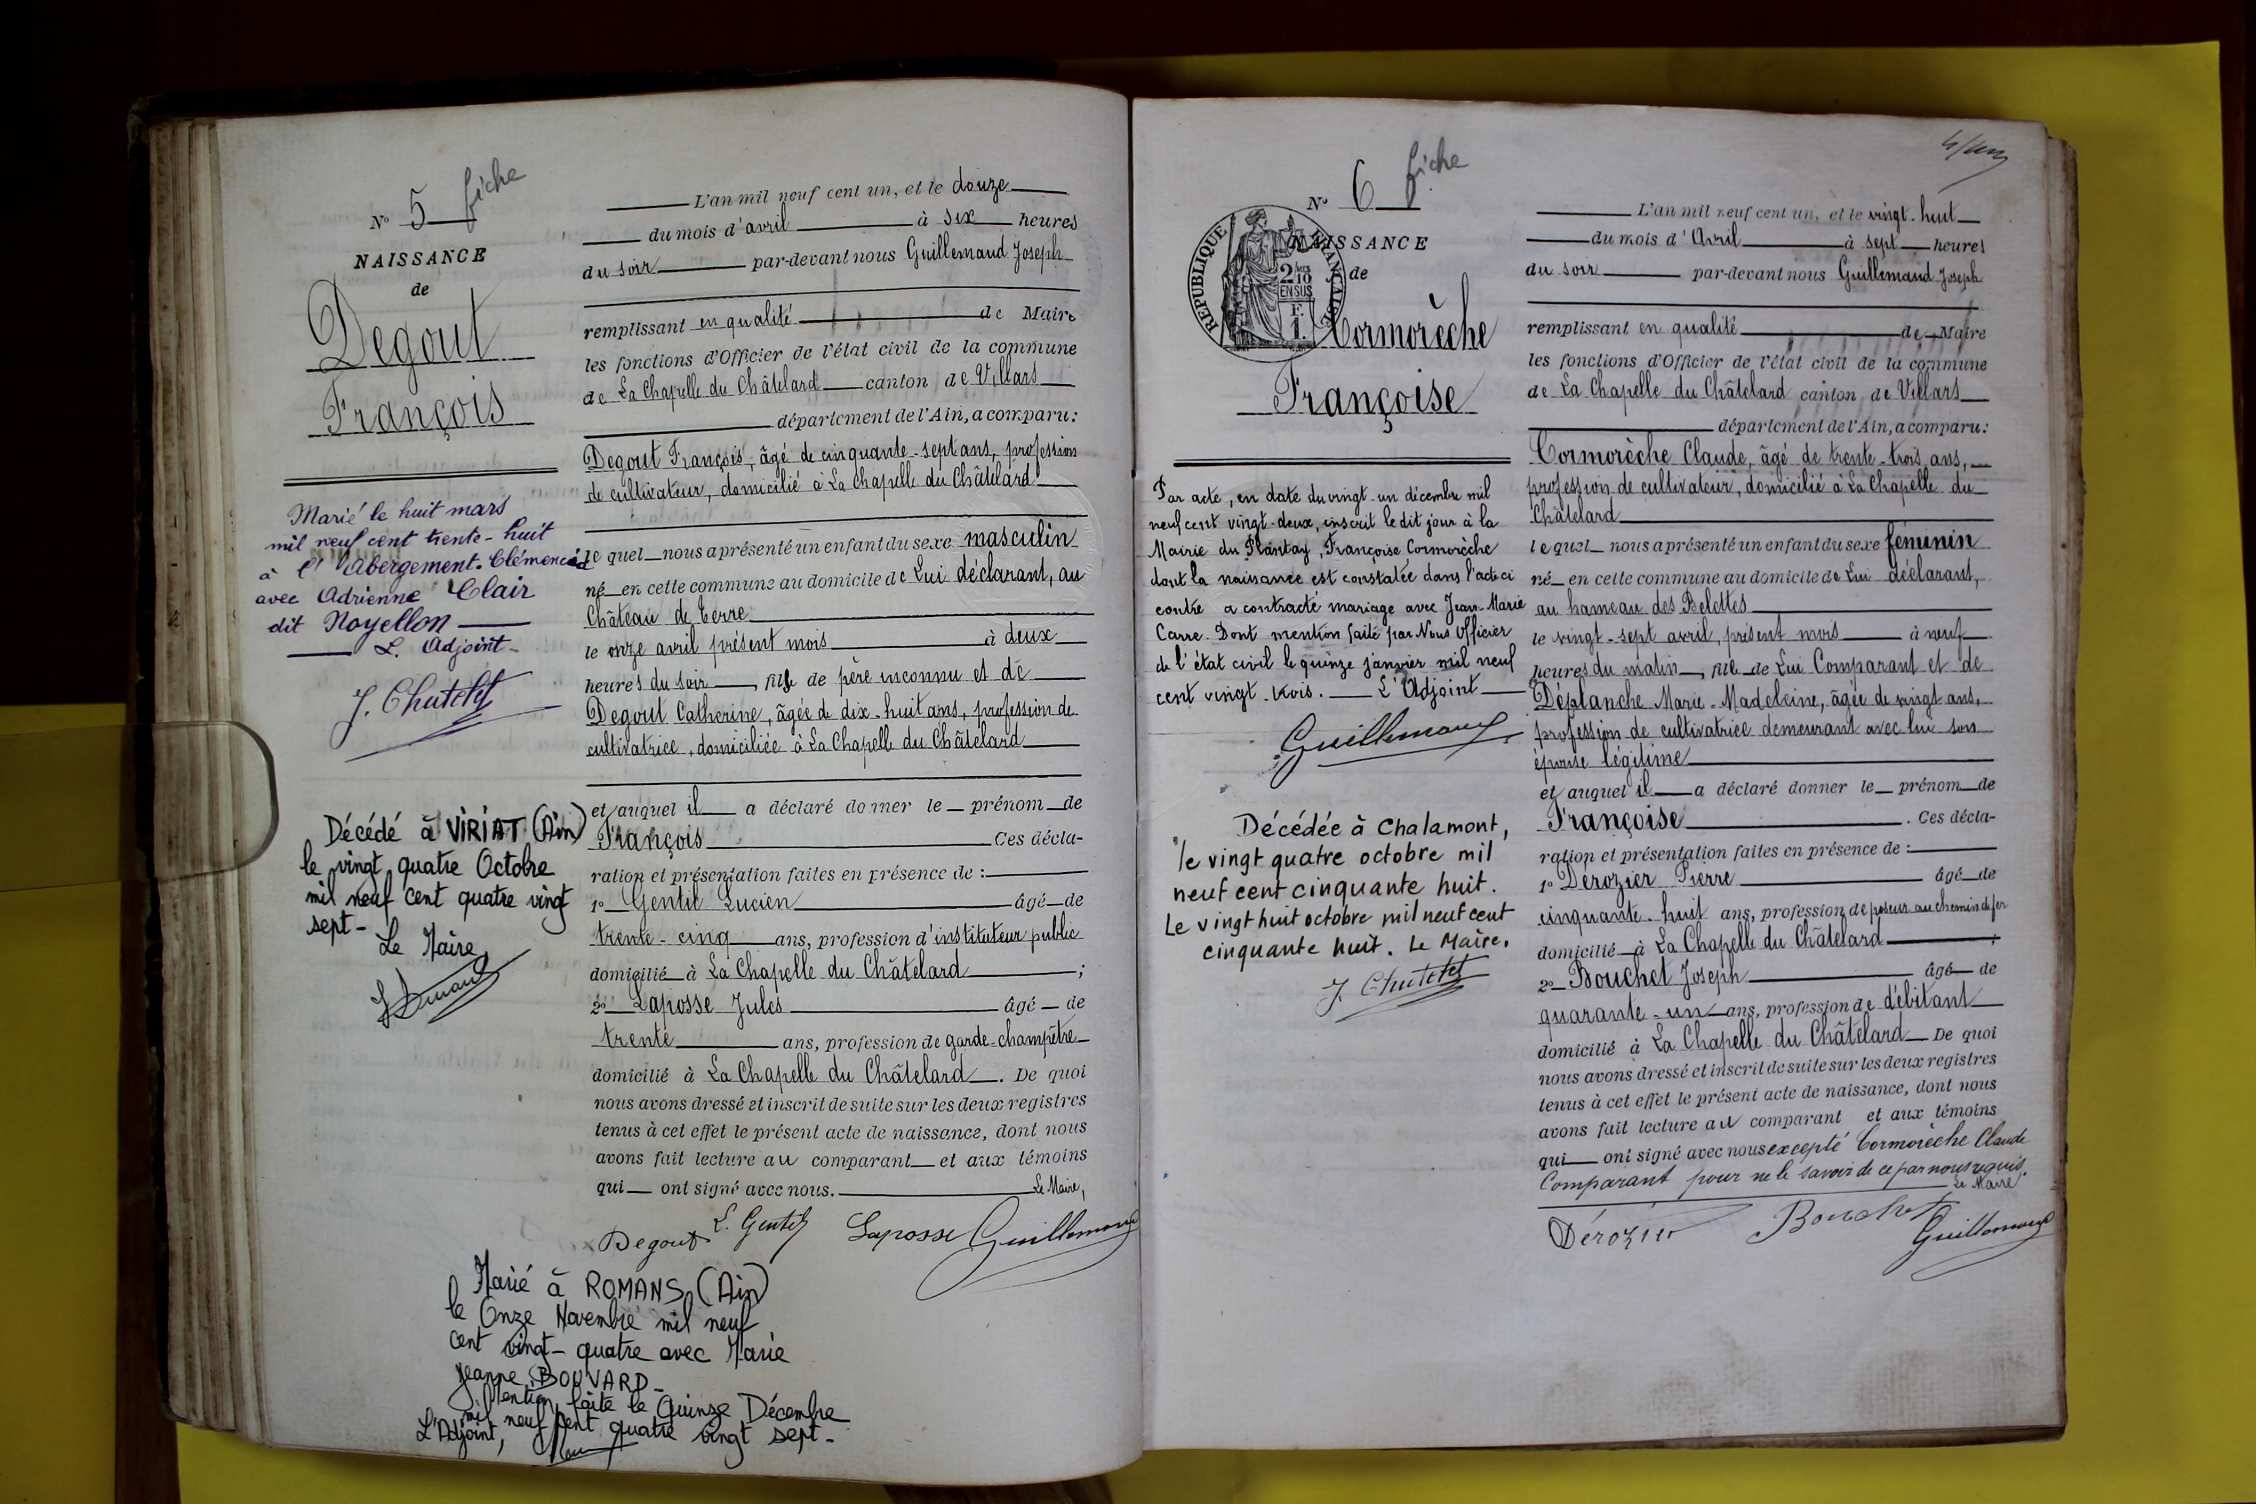 fiche
N° 5
NAISSANCE
de
Degout
François
Marié le huit mars
mil neuf cent trente-huit
à l'Abergement-Clémenciat
avec Adrienne Clair
dit Noyellon
L. Adjoint-
J. Chatelet
Décédé à VIRIAT (Ain)
le vingt quatre Octobre
mil neuf cent quatre vingt
sept-
Le Maire
L'an mil neuf cent un, et le douze
du mois d'avril à six heures
du soir par-devant nous Guillemaud Joseph
remplissant en qualité de Maire
les fonctions d'Officier de l'état civil de la commune
de La Chapelle du Châtelard canton de Villars
département de l'Ain, a comparu:
Degout François, âgé de cinquante-sept ans, profession
de cultivateur, domicilié à La Chapelle du Châtelard
le quel nous a présenté un enfant du sexe masculin
né en cette commune au domicile de Lui déclarant, au
Château de Terre
le onze avril présent mois à deux
heures du soir, fils de père inconnu et de
Degout Catherine, âgée de dix-huit ans, profession de
cultivatrice, domiciliée à La Chapelle du Châtelard
et auquel il a déclaré donner le prénom de
François Ces décla-
ration et présentation faites en présence de :
1° Gentil Lucien âgé de
trente-cinq ans, profession d'instituteur public
domicilié à La Chapelle du Châtelard ;
2° Laposse Jules âgé de
trente ans, profession de garde-champêtre
domicilié à La Chapelle du Châtelard. De quoi
nous avons dressé et inscrit de suite sur les deux registres
tenus à cet effet le présent acte de naissance, dont nous
avons fait lecture au comparant et aux témoins
qui ont signé avec nous. Le Maire,
Degout L. Gentil Laposse Guillemaud
Marié à ROMANS (Ain)
le Onze Novembre mil neuf
cent vingt-quatre avec Marie
Jeanne BOUVARD-
Mention faite le Quinze Décembre
mil neuf cent quatre vingt sept-
L'Adjoint,
fiche
N° 6
NAISSANCE
de
RÉPUBLIQUE FRANÇAISE
2/10
EN SUS
F.
1.
Cormorèche
Françoise
Par acte, en date du vingt-un décembre mil
neuf cent vingt-deux, inscrit le dit jour à la
Mairie du Plantay, Françoise Cormorèche
dont la naissance est constatée dans l'acte ci
contre a contracté mariage avec Jean-Marie
Carre. Dont mention faite par Nous Officier
de l'état civil le quinze janvier mil neuf
cent vingt-trois. L'Adjoint
Guillemaud
Décédée à Chalamont,
le vingt quatre octobre mil
neuf cent cinquante huit.
Le vingt huit octobre mil neuf cent
cinquante huit. Le Maire.
J. Chatelet
L'an mil neuf cent un, et le vingt-huit
du mois d'Avril à sept heures
du soir par-devant nous Guillemaud Joseph
remplissant en qualité de Maire
les fonctions d'Officier de l'état civil de la commune
de La Chapelle du Châtelard canton de Villars
département de l'Ain, a comparu:
Cormorèche Claude, âgé de trente-trois ans,
profession de cultivateur, domicilié à La Chapelle du
Châtelard
le quel nous a présenté un enfant du sexe féminin
né en cette commune au domicile de Lui déclarant,
au hameau des Belettes
le vingt-sept avril, présent mois à neuf
heures du matin, fille de Lui Comparant et de
Déplanche Marie-Madeleine, âgée de vingt ans,
profession de cultivatrice demeurant avec lui son
épouse légitime
et auquel il a déclaré donner le prénom de
Françoise. Ces décla-
ration et présentation faites en présence de :
1° Dérozier Pierre âgé de
cinquante-huit ans, profession de poseur au chemin de fer
domicilié à La Chapelle du Châtelard ;
2° Bouchet Joseph âgé de
quarante-un ans, profession de débitant
domicilié à La Chapelle du Châtelard De quoi
nous avons dressé et inscrit de suite sur les deux registres
tenus à cet effet le présent acte de naissance, dont nous
avons fait lecture au comparant et aux témoins
qui ont signé avec nous excepté Cormorèche Claude
Comparant pour ne le savoir de ce par nous requis.
Le Maire
Dérozier Bouchet Guillemaud